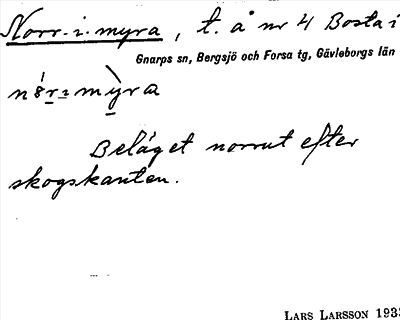 Norr-i-myra, t. å nr 4 Bosta i
Gnarps sn, Bergsjö och Forsa tg, Gävleborgs län
Beläget norrut efter
skogskanten.
LARS LARSSON 193